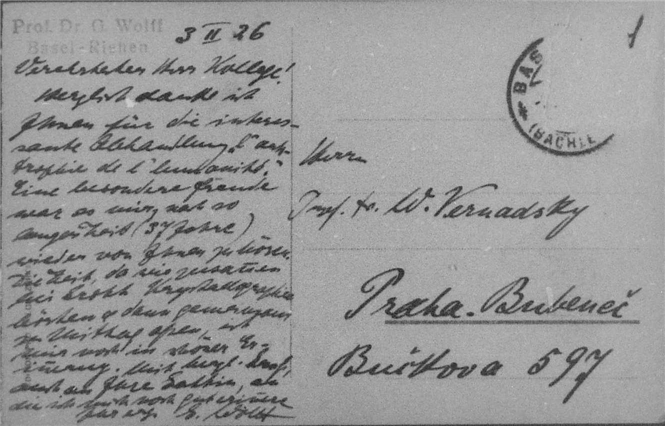 Prof. Dr. G. Wolff
Basel-Riehen
3 II 26
Verehrtester Herr Kollege!
Herzlich danke ich
Ihnen für die interes-
sante Abhandlung "l'au-
trophie de l'humanité."
Eine besondere Freude
war es mir, nach so
langer Zeit (37 Jahre)
wieder von Ihnen zu hören.
Die Zeit, da wir zusammen
bei Groth Krystallographie
hörten & dann gemeinsam
zu Mittag aßen, ist
mir noch in schöner Er-
innerung. Mit herzl. Gruß,
auch an Ihre Gattin, an
die ich mich noch gut erinnere
Ihr erg. G. Wolff
Herrn
Prof. Dr. W. Vernadsky
Praha-Bubeneč
Bučkova 597
BAS
(BACHLE